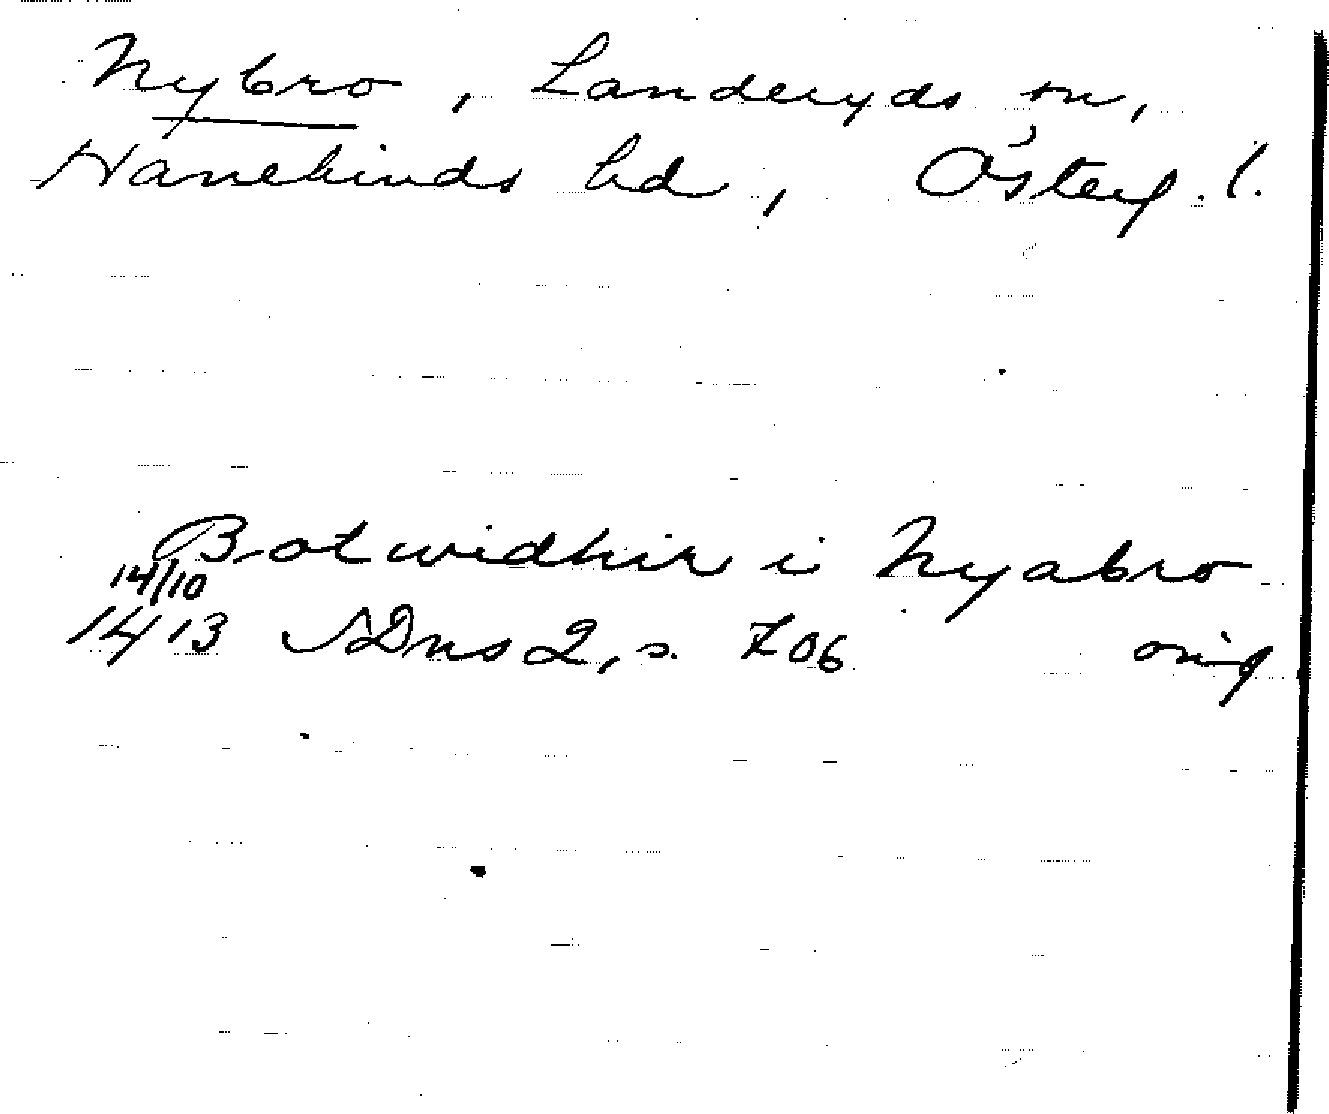 Nybro, Landeryds sn,
Hanekinds hd, Österg. l.
Botwidhir i Nyabro
14/10
1413 SDns 2, s. 706 orig